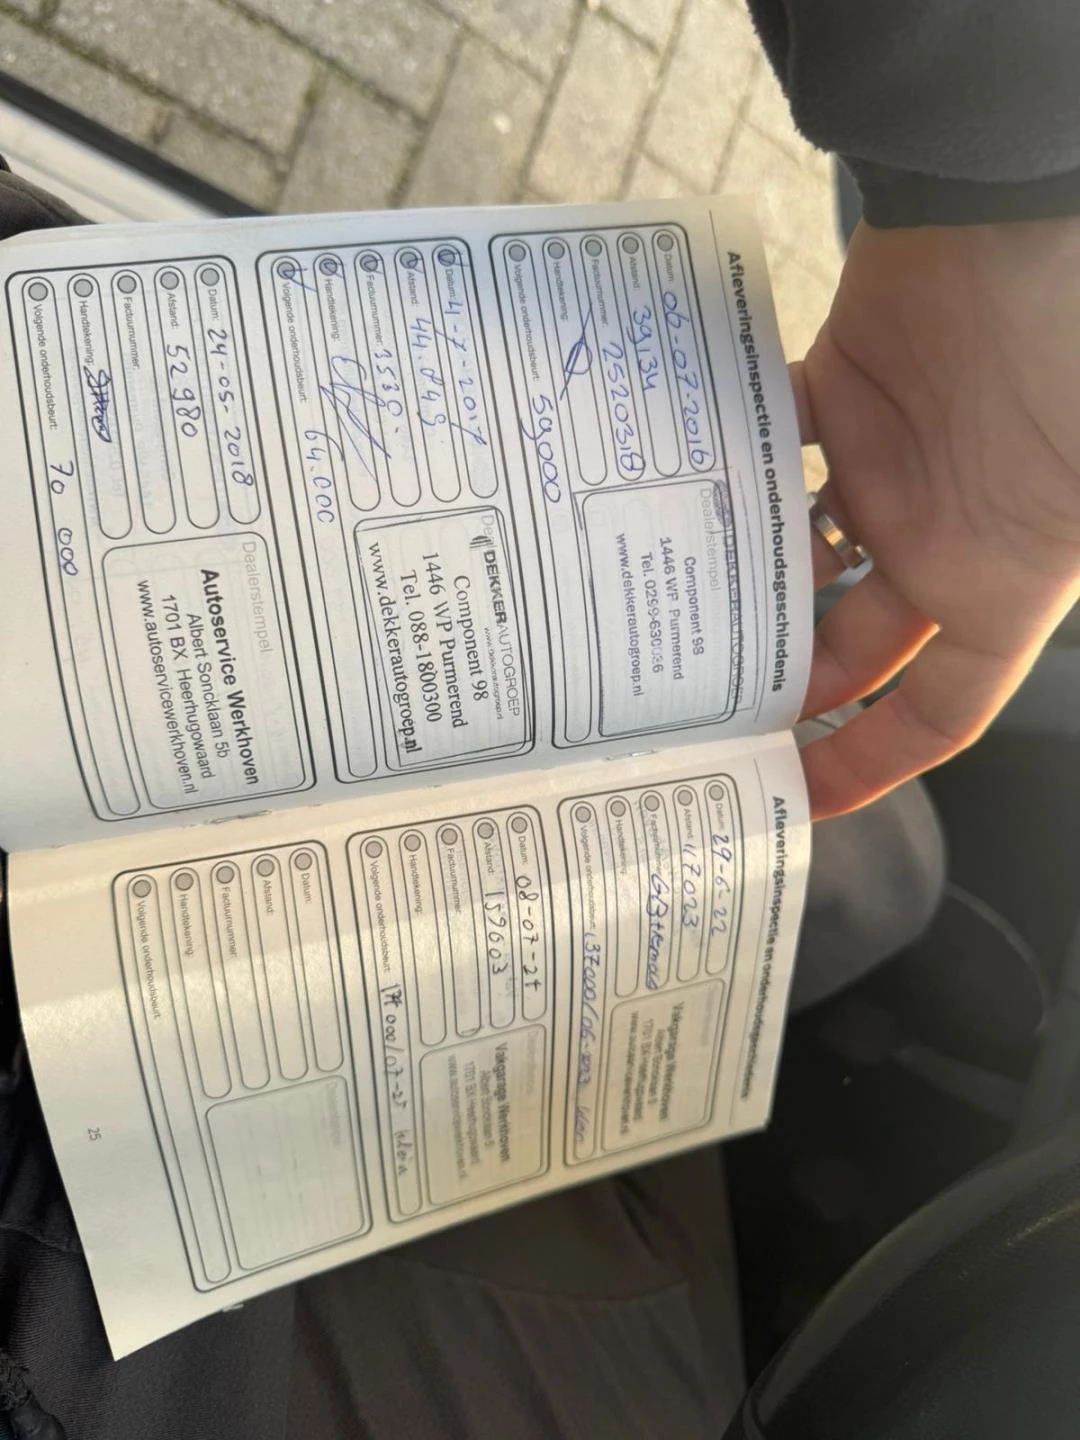 Afleveringsinspectie en onderhoudsgeschiedenis
Datum: 06-07-2016
Afstand: 39134
Factuurnummer: 2520318
Handtekening:
Volgende onderhoudsbeurt: 59000
Dealerstempel
DEKKERAUTOGROEP
Component 98
1446 WP Purmerend
Tel. 0299-630036
www.dekkerautogroep.nl
Datum: 4-7-2017
Afstand: 44.849.
Factuurnummer: 3530.
Handtekening:
Volgende onderhoudsbeurt: 64.000
DEKKERAUTOGROEP
www.dekkerautogroep.nl
Component 98
1446 WP Purmerend
Tel. 088-1800300
www.dekkerautogroep.nl
Datum: 24-05-2018
Afstand: 52980
Factuurnummer:
Handtekening:
Volgende onderhoudsbeurt: 70 000
Dealerstempel
Autoservice Werkhoven
Albert Soncklaan 5b
1701 BX Heerhugowaard
www.autoservicewerkhoven.nl
Afleveringsinspectie en onderhoudsgeschiedenis
Datum: 29-6-22
Afstand: 117023
Factuurnummer:
Handtekening:
Volgende onderhoudsbeurt: 137000/06-2023
Vakgarage Werkhoven
Albert Soncklaan 5
1701 BX Heerhugowaard
www.autoservicewerkhoven.nl
Datum: 08-07-24
Afstand: 159603
Factuurnummer:
Handtekening:
Volgende onderhoudsbeurt: 174 000/07-25 klein
Vakgarage Werkhoven
Albert Soncklaan 5
1701 BX Heerhugowaard
www.autoservicewerkhoven.nl
Datum:
Afstand:
Factuurnummer:
Handtekening:
Volgende onderhoudsbeurt:
Dealerstempel
25